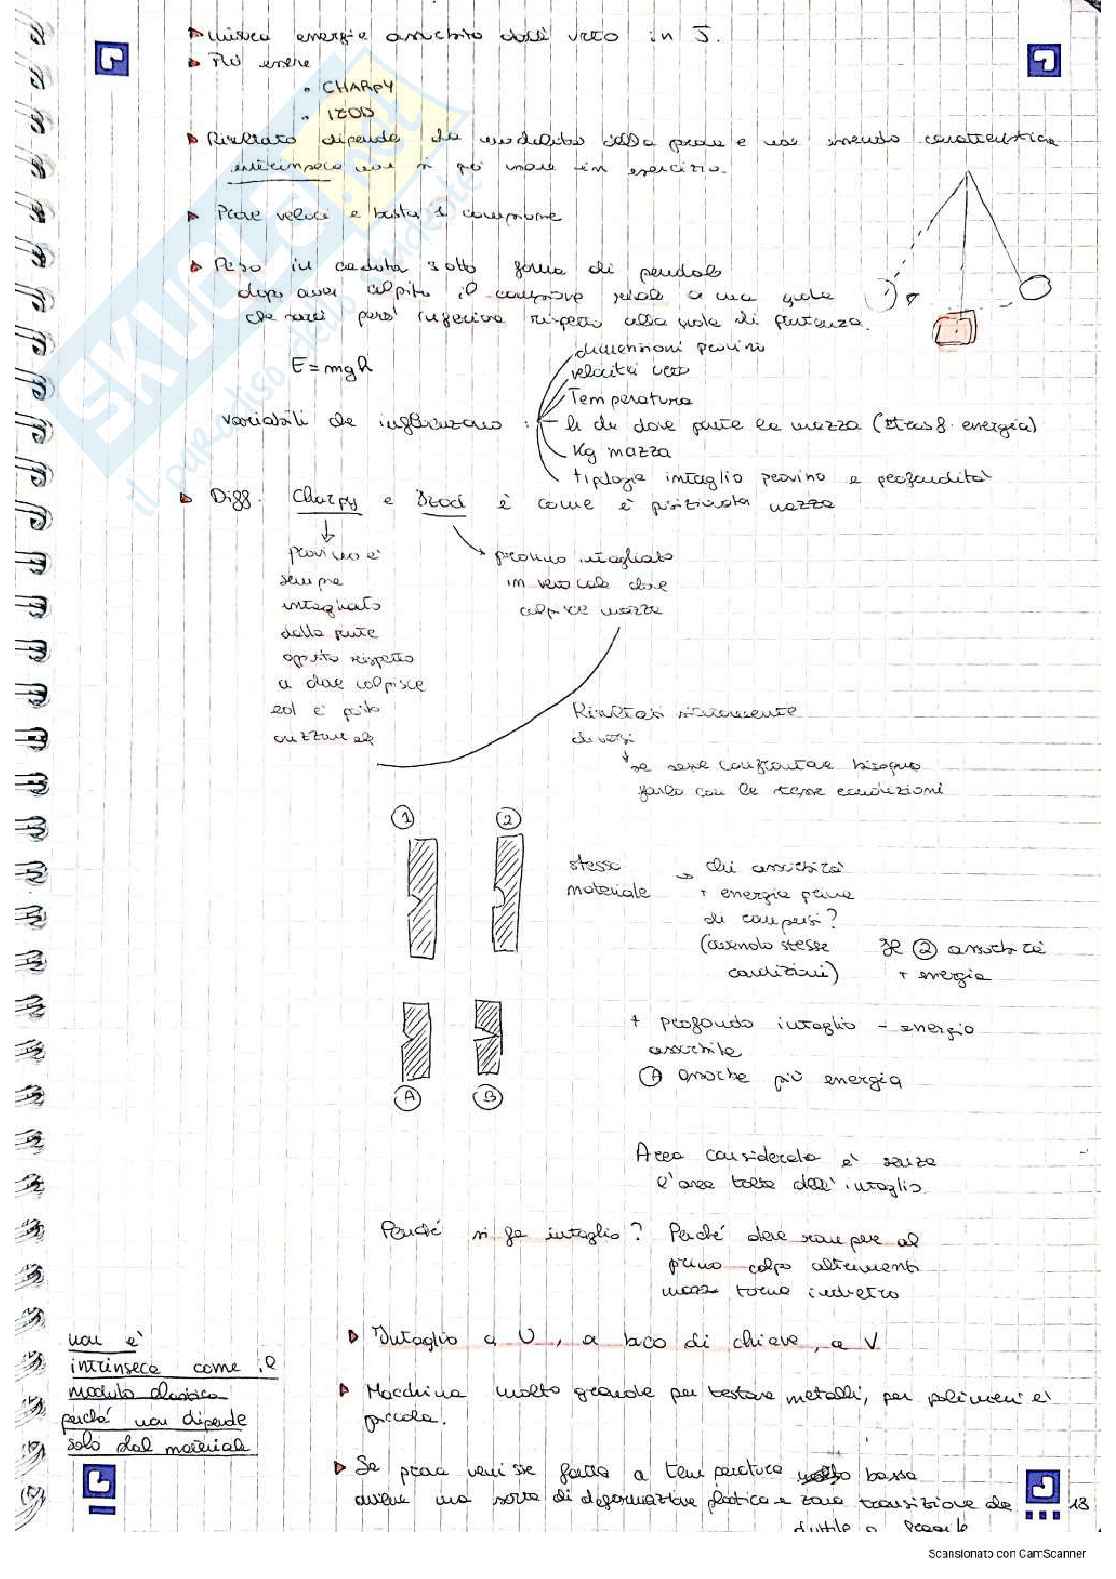 misura energia assorbita dall'urto in J.
Può essere
• CHARPY
• IZOD
Risultato dipende da modalità della prova e non essendo caratteristica
intrinseca non si può usare in esercizio.
Prove veloci e basta 1 campione
Peso in caduta sotto forma di pendolo
dopo aver colpito il campione risale a una quota
che sarà però inferiore rispetto alla quota di partenza.
E=mgh
dimensioni provino
velocità urto
Temperatura
variabili che influenzano :
h da dove parte la mazza (trasf. energia)
Kg mazza
tipologia intaglio provino e profondità
Diff. Charpy e Izod è come è posizionata mazza
provino è
sempre
intagliato
dalla parte
opposta rispetto
a dove colpisce
ed è posto
orizzontale
provino intagliato
in verticale dove
colpisce mazza
Risultati sicuramente
diversi
se serve confrontare bisogna
farlo con le stesse condizioni
1 2
stesso
materiale
chi assorbirà
+ energia prima
di rompersi?
(avendo stesse
condizioni)
Il 2 assorbirà
+ energia
+ profondo intaglio - energia
assorbita
A assorbe più energia
A B
Area considerata è senza
l'area tolta dall'intaglio.
Perché si fa intaglio? Perché deve rompere al
primo colpo altrimenti
mazza torna indietro
Intaglio a U, a buco di chiave, a V
Macchina molto grande per testare metalli, per polimeri è
piccola.
non è
intrinseca come il
modulo elastico
perché non dipende
solo dal materiale
Se prova venisse fatta a temperatura molto bassa
avviene una sorta di deformazione plastica e zona transizione da
duttile a fragile
13
SKUOLA.net
il paradiso dello studente
Scansionato con CamScanner